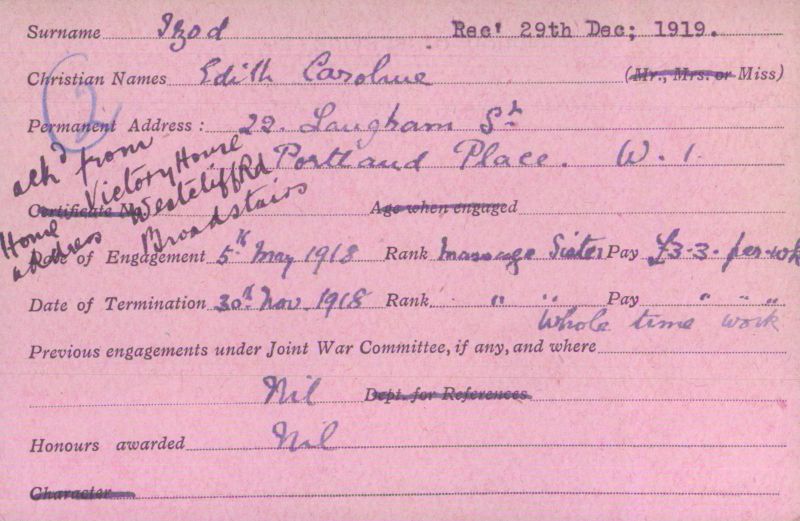 Surname Izod Rec' 29th Dec; 1919.
Christian Names Edith Caroline (Mr., Mrs. or Miss)
2
Permanent Address: 22. Langham St
Portland Place. W.1.
ackd from
Victory House
Westcliff Rd
Broadstairs
Home
address
Certificate No. Age when engaged
Date of Engagement 5th May 1918 Rank Massage Sister Pay £3-3- per wk
Date of Termination 30th Nov. 1918 Rank " " Pay " " "
Whole time work
Previous engagements under Joint War Committee, if any, and where
Nil Dept. for References
Honours awarded Nil
Character